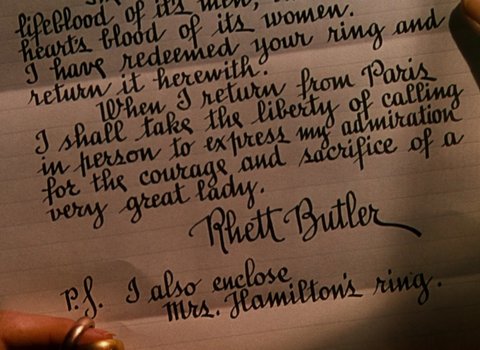 lifeblood of its men,
heart's blood of its women.
I have redeemed your ring and
return it herewith.
When I return from Paris
I shall take the liberty of calling
in person to express my admiration
for the courage and sacrifice of a
very great lady.
Rhett Butler
P.S. I also enclose
Mrs. Hamilton's ring.